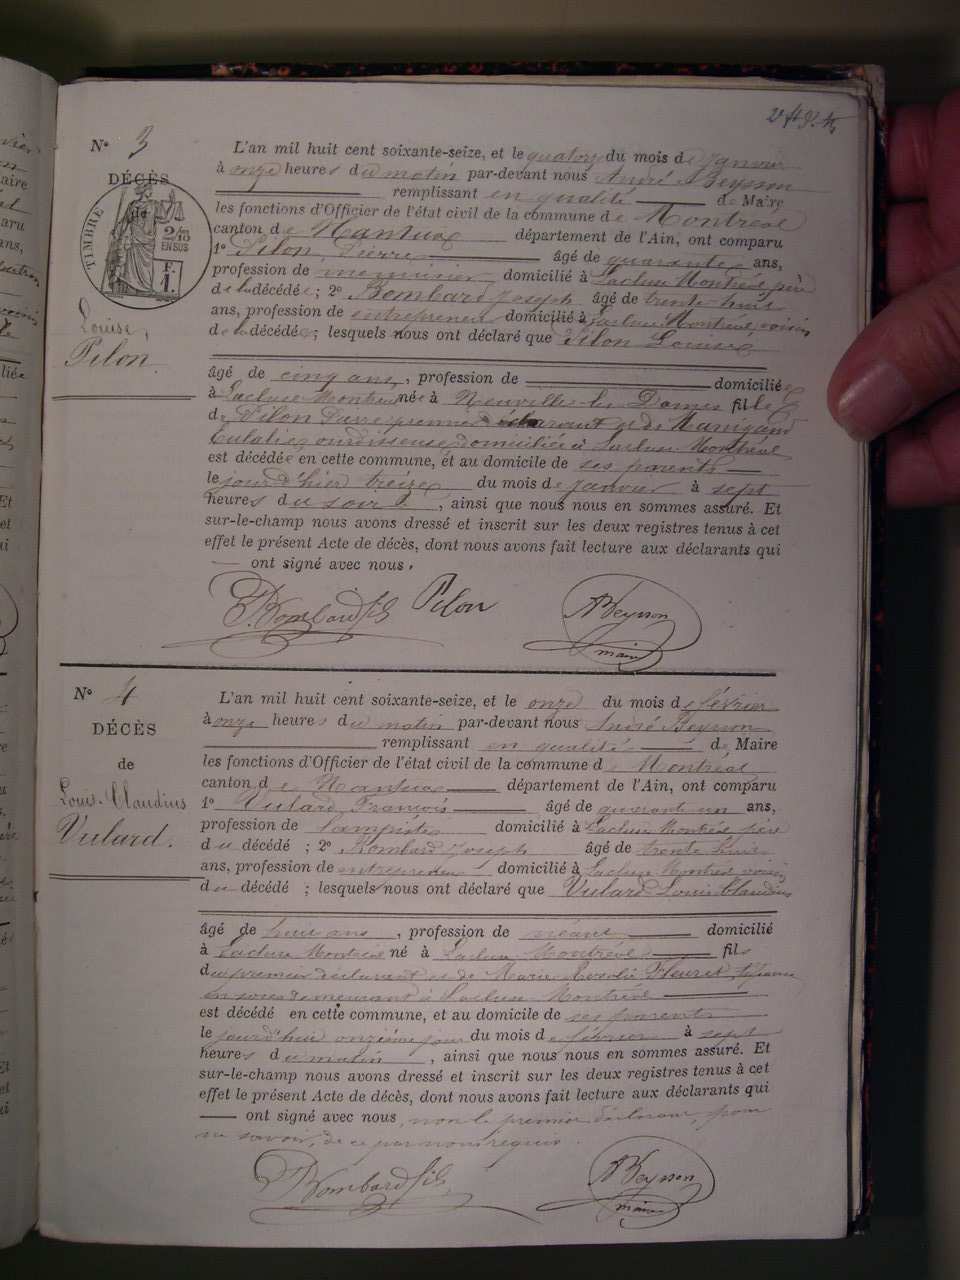 N° 3
DÉCÈS
de
TIMBRE
2/10
EN SUS
F.
1.
Louise,
Pilon.
L'an mil huit cent soixante-seize, et le quatorze du mois de janvier
à onze heures du matin par-devant nous André Beysson
remplissant en qualité de Maire
les fonctions d'Officier de l'état civil de la commune de Montréal
canton de Nantua département de l'Ain, ont comparu
1° Pilon, Pierre âgé de quarante ans,
profession de menuisier, domicilié à Lacluse Montréal, père
de la décédée ; 2° Bombard Joseph âgé de trente-huit
ans, profession de entrepreneur domicilié à Lacluse Montréal, voisin
de la décédée ; lesquels nous ont déclaré que Pilon Louise
âgé de cinq ans, profession de domiciliée
à Lacluse Montréal née à Neuville les Dames fille
de Pilon Pierre premier déclarant et de
Eulalie ourdisseuse, domiciliée à Lacluse Montréal
est décédée en cette commune, et au domicile de ses parents
le jour d'hier treize du mois de janvier à sept
heures du soir, ainsi que nous nous en sommes assuré. Et
sur-le-champ nous avons dressé et inscrit sur les deux registres tenus à cet
effet le présent Acte de décès, dont nous avons fait lecture aux déclarants qui
ont signé avec nous.
Bombard fils Pilon ABeysson
maire
N° 4
DÉCÈS
de
Louis-Claudius
Vulard.
L'an mil huit cent soixante-seize, et le onze du mois de février
à onze heures du matin par-devant nous André Beysson
remplissant en qualité de Maire
les fonctions d'Officier de l'état civil de la commune de Montréal
canton de Nantua département de l'Ain, ont comparu
1° Vulard François âgé de quarante un ans,
profession de lampiste domicilié à Lacluse Montréal père
du décédé ; 2° Bombard Joseph âgé de trente huit
ans, profession de entrepreneur domicilié à Lacluse Montréal voisin
du décédé ; lesquels nous ont déclaré que Vulard Louis Claudius
âgé de huit ans, profession de néant domicilié
à Lacluse Montréal né à Lacluse Montréal fils
du premier déclarant et de Marie Fleuret
demeurant à Lacluse Montréal
est décédé en cette commune, et au domicile de ses parents
le jourd'hui onzième jour du mois de février à sept
heures du matin, ainsi que nous nous en sommes assuré. Et
sur-le-champ nous avons dressé et inscrit sur les deux registres tenus à cet
effet le présent Acte de décès, dont nous avons fait lecture aux déclarants qui
ont signé avec nous, non le premier déclarant, pour
ne savoir, de ce par nous requis.
Bombard fils ABeysson
maire